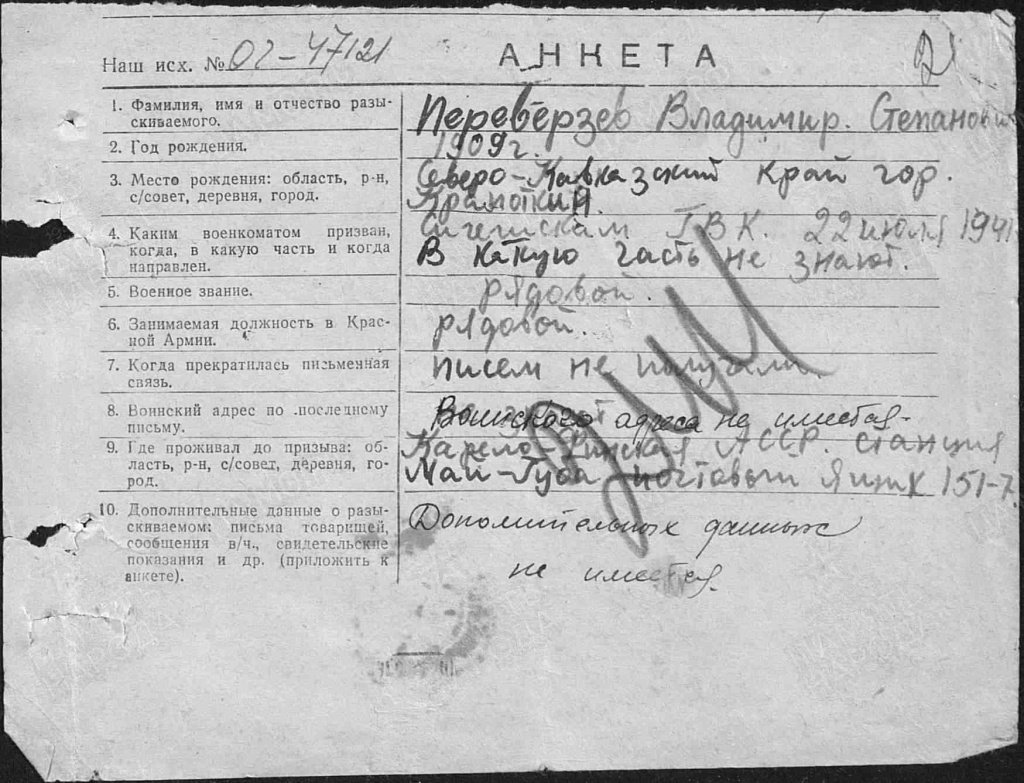 Наш исх. № 02-47121
АНКЕТА
21
1. Фамилия, имя и отчество разы-
скиваемого.
Переверзев Владимир. Степанович
2. Год рождения.
1909г.
3. Место рождения: область, р-н,
с/совет, деревня, город.
Северо-Кавказский край гор.
4. Каким военкоматом призван,
когда, в какую часть и когда
направлен.
ГВК. 22 июля 1941
В какую часть не знают.
5. Военное звание.
рядовой.
6. Занимаемая должность в Крас-
ной Армии.
рядовой.
7. Когда прекратилась письменная
связь.
писем не получали.
8. Воинский адрес по последнему
письму.
Воинского адреса не имеется.
9. Где проживал до призыва: об-
ласть, р-н, с/совет, деревня, го-
род.
Карело-Финская АССР. станция
Май-Губа почтовый ящик 151-7
10. Дополнительные данные о разы-
скиваемом: письма товарищей,
сообщения в/ч., свидетельские
показания и др. (приложить к
анкете).
Дополнительных данных
не имеется.